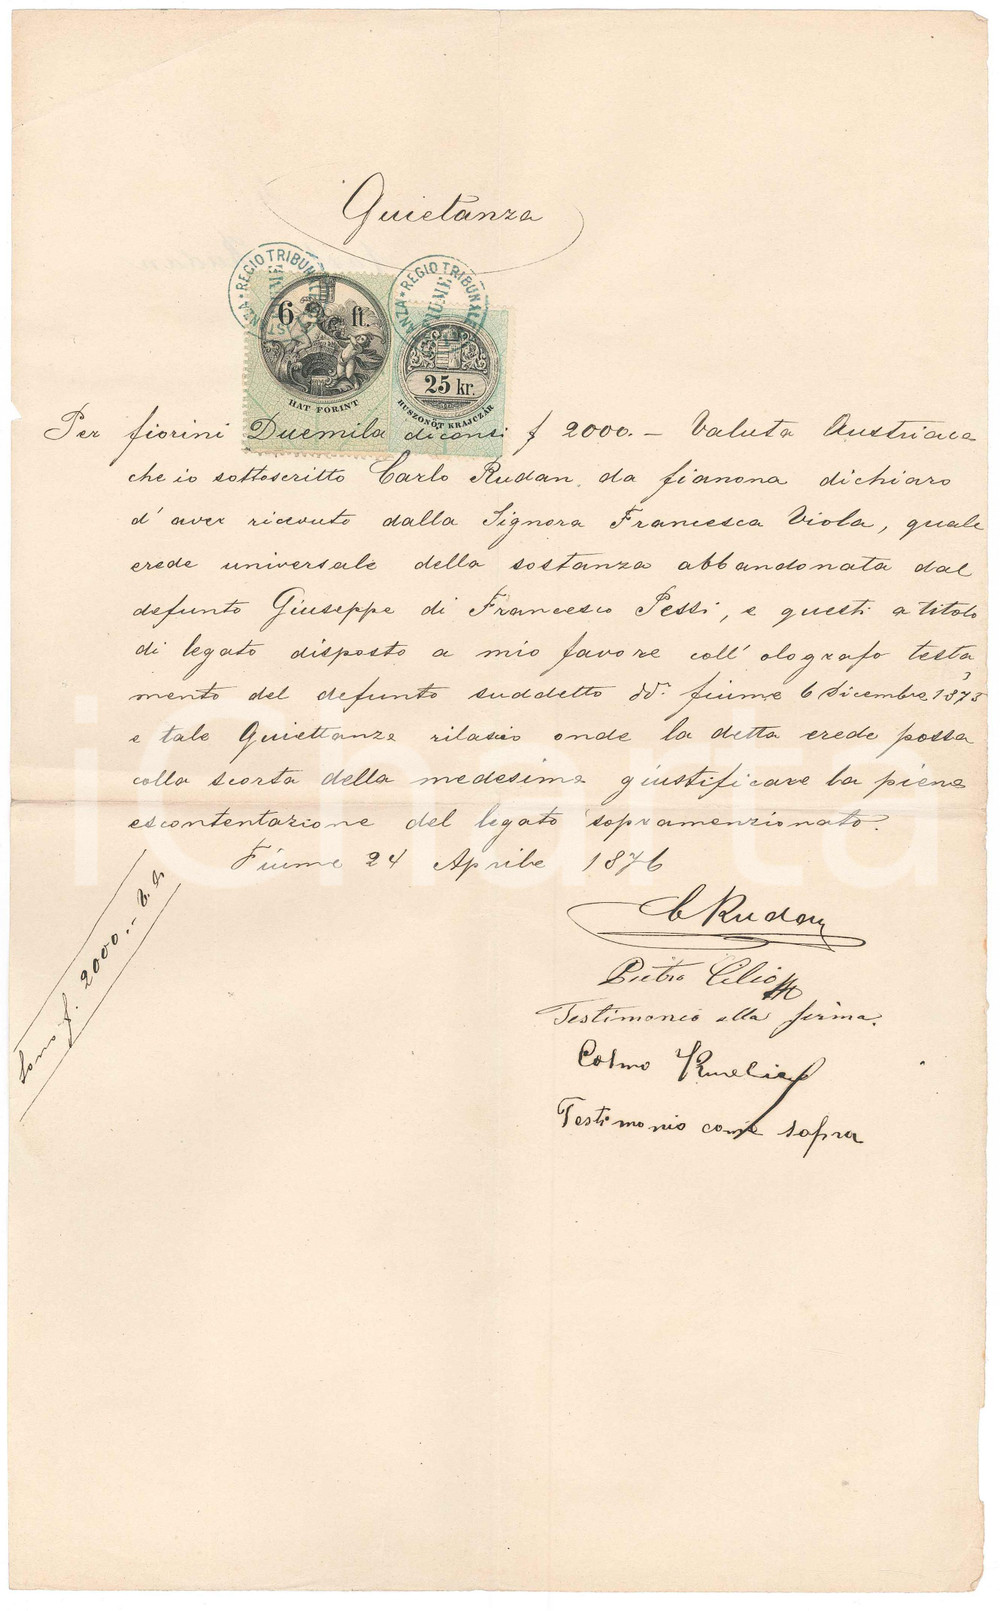 Quietanza
REGIO TRIBUNALE
FIUME
REGIO TRIBUNALE
FIUME
6 ft.
HAT FORINT
25 kr.
HUSZONÖT KRAJCZÁR
Per fiorini Duemila diconsi f 2000. – Valuta Austriaca
che io sottoscritto Carlo Rudan, da fianona dichiaro
d'aver ricevuto dalla Signora Francesca Viola, quale
erede universale della sostanza abbandonata dal
defunto Giuseppe di Francesco Pessi, e questi a titolo
di legato disposto a mio favore coll' olografo testa
mento del defunto suddetto dd. fiume 6 Dicembre 1873
e tale Quiettanza rilascio onde la detta erede possa
colla scorta della medesima giustificare la piena
escontentazione del legato sopramenzionato.
Fiume 24 Aprile 1876
C Rudan
Pietro
Testimonio alla firma.
Cosmo
Testimonio come sopra
Sono f. 2000.–
iCharta